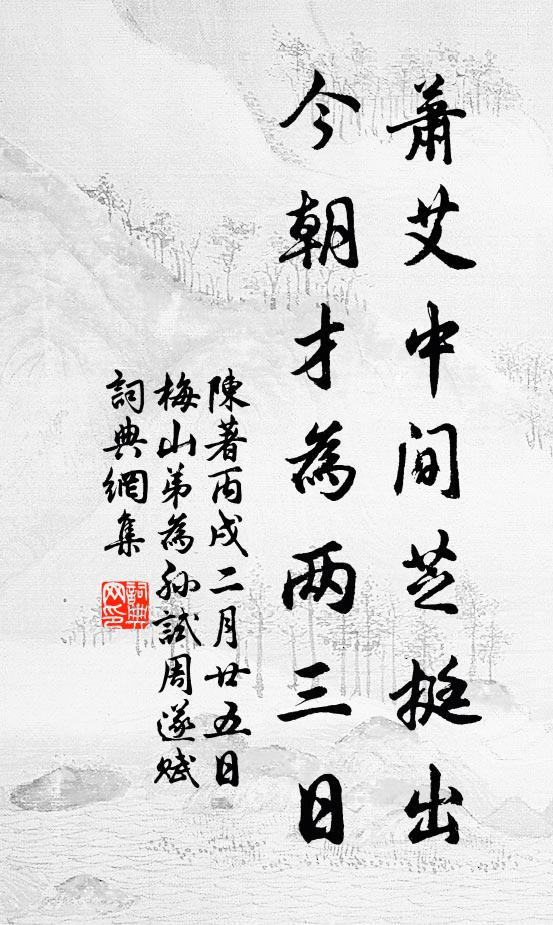 蕭艾中間芝挺出
今朝才為兩三日
陳著丙戌二月廿五日
梅山弟為孫試周遂賦
詞典網集
詞典网印